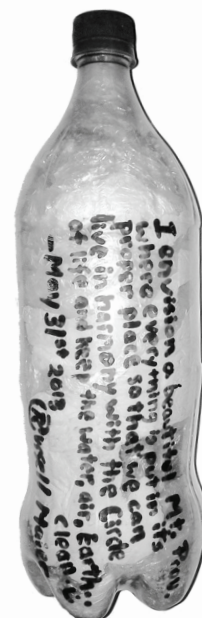 I envision a beautiful Mt. Prov.
where everything is put in its
proper place so that we can
live in harmony with the Circle
of life and keep the water, air, Earth...
clean
- May 31st 2013